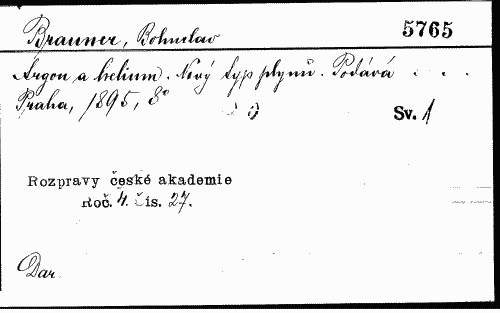 Brauner, Bohuslav 5765
Argon a helium. Nový typ plynů. Podává . . .
Praha, 1895, 8°
Sv. 1
Rozpravy české akademie
Roč. 4. Čís. 27.
Dar